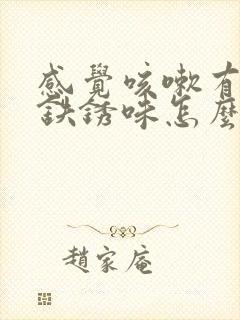 感覺咳嗽有
鉄銹味怎麼
趙家庵